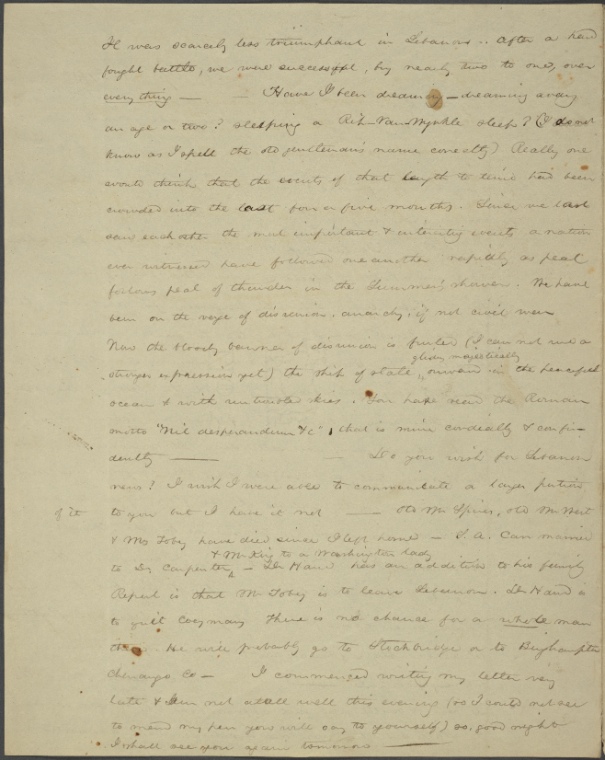 It was scarcely less triumphant in Lebanon .. After a hard
fought battle, we were successful, by nearly two to one, over
everything — — Have I been dreaming — dreaming away
an age or two? sleeping a Rih-Van-Wynkle sleep? (I do not
know as I spell the old gentleman's name correctly) Really one
would think that the events of that length to time had been
crowded into the last four or five months. Since we last
saw each other the most important & interesting events a nation
ever witnessed have followed one another rapidly as peal
follows peal of thunder in the Summer's shower. We have
been on the verge of disunion, anarchy, if not civil war
Now the bloody banner of disunion is furled (I can not use a
gliding majestically
stronger expression yet) the ship of state, onward in the peaceful
ocean & with skies. You have read the Roman
motto "Nil desperandum &c", that is mine cordially & confi-
dently — — Do you wish for Lebanon
news? I wish I were able to communicate a larger
of it to you but I have it not — Old Mr Spier, old Mr West
& Ms Tobey have died since I left home — S. A. Carr married
& Mr King to a Washington lady
to Dr Carpenter, — Dr Hand has an addition to his family
Report is that Mr Tobey is to leave Lebanon. Dr Hand is
to quit There is no chance for a whole man
He will probably go to Stockbridge or to Binghampton
Chenango Co — I commenced writing my letter very
late & am not at all well this evening (so I could not see
to mend my pen you will say to yourself) so, good night
I shall see you again tomorrow —